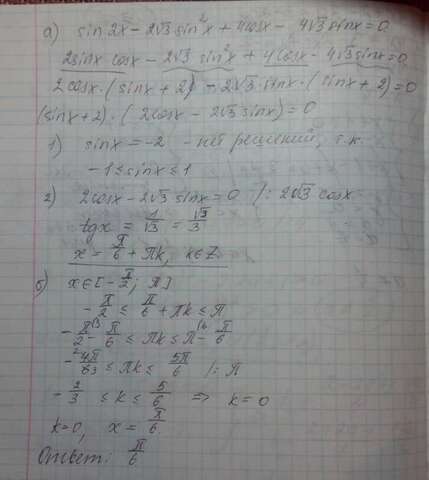 а) sin2x − 2√3 sin²x + 4cosx − 4√3 sinx = 0
2sinx cosx − 2√3 sin²x + 4cosx − 4√3 sinx = 0
2cosx · (sinx + 2) − 2√3 · sinx · (sinx + 2) = 0
(sinx + 2) · (2cosx − 2√3 sinx) = 0
1) sinx = −2 − нет решений, т.к.
−1 ≤ sinx ≤ 1
2) 2cosx − 2√3 sinx = 0 /: 2√3 cosx
tgx = 1/√3 = √3/3
x = π/6 + πk, k∈Z
б) x∈[−π/2; π]
−π/2 ≤ π/6 + πk ≤ π
−π/2 \3 − π/6 ≤ πk ≤ π \6 − π/6
−4π/6 ≤ πk ≤ 5π/6 /: π
−2/3 ≤ k ≤ 5/6 => k = 0
k=0, x = π/6
Ответ: π/6